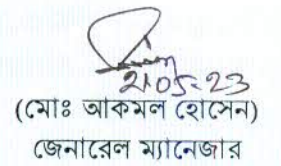 21-05-23
(মোঃ আকমল হোসেন)
জেনারেল ম্যানেজার